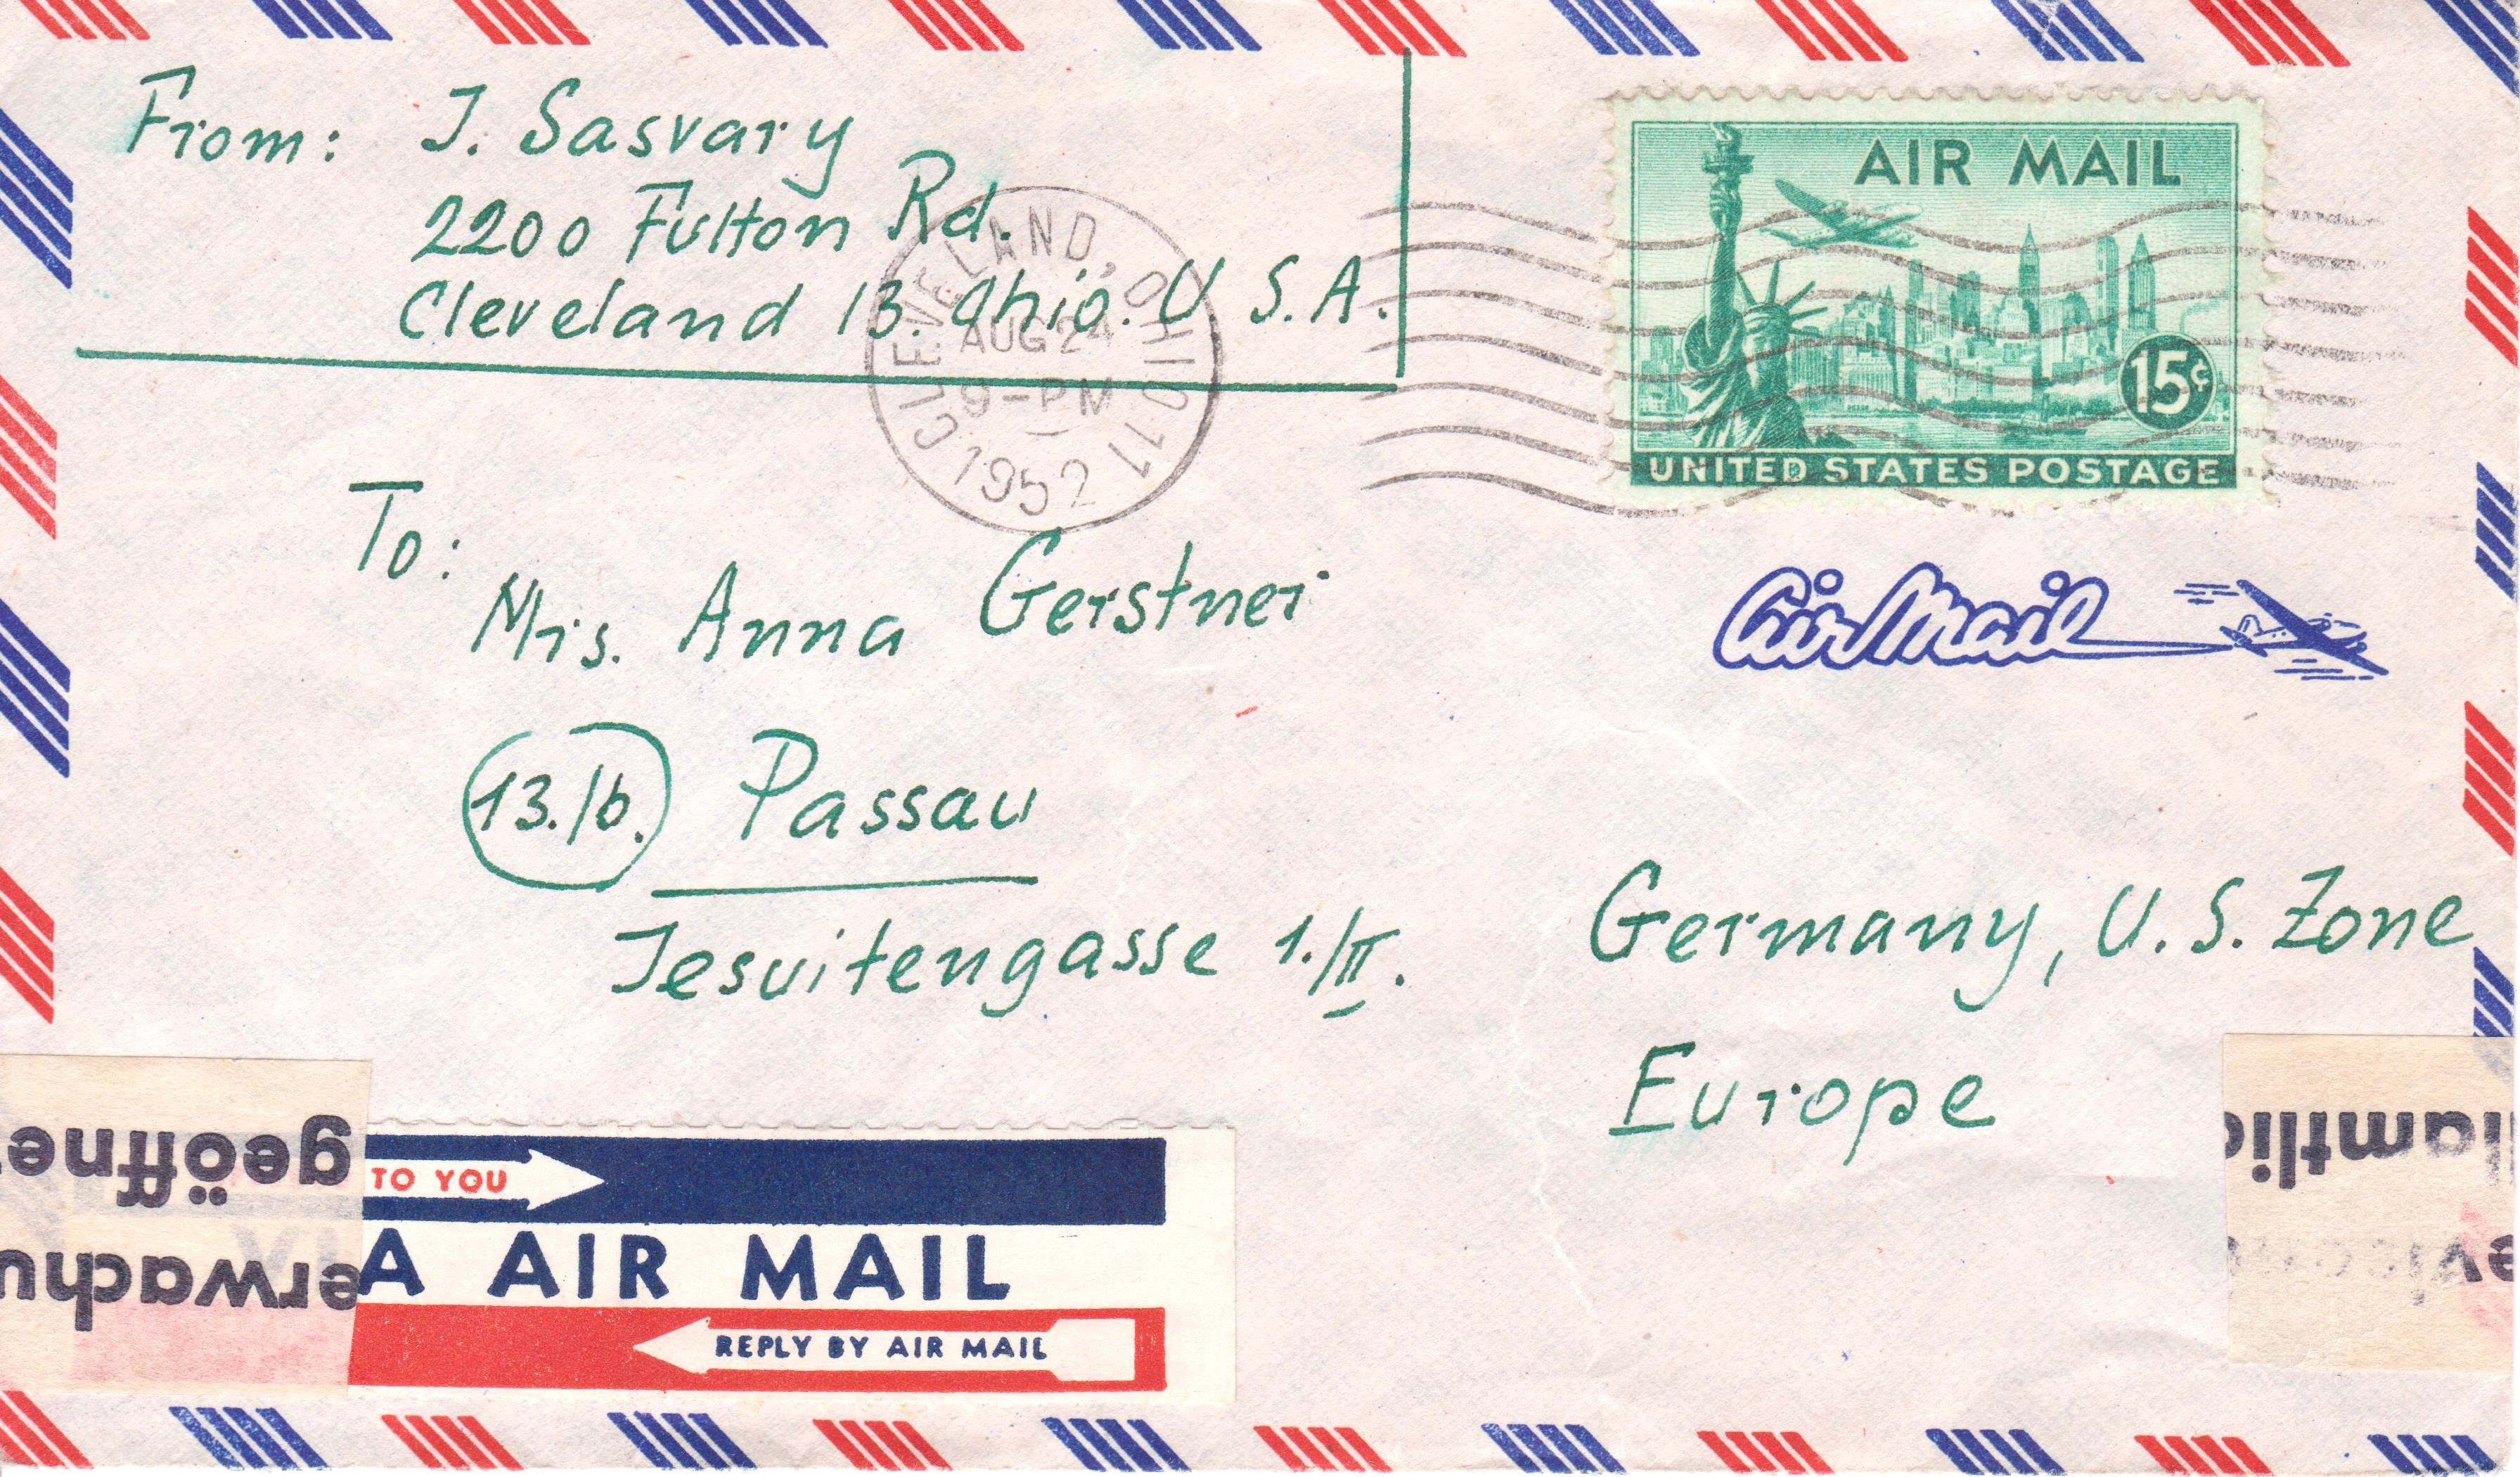 From: J. Sasvary
2200 Fulton Rd.
Cleveland 13. Ohio. U.S.A.
CLEVELAND, OHIO 11
AUG 24
9-PM
1952
AIR MAIL
15¢
UNITED STATES POSTAGE
Air Mail
To:
Mrs. Anna Gerstner
13./b. Passau
Jesuitengasse 1./II.
Germany, U.S. Zone
Europe
geöffne
erwachu
TO YOU
A AIR MAIL
REPLY BY AIR MAIL
lamtlic